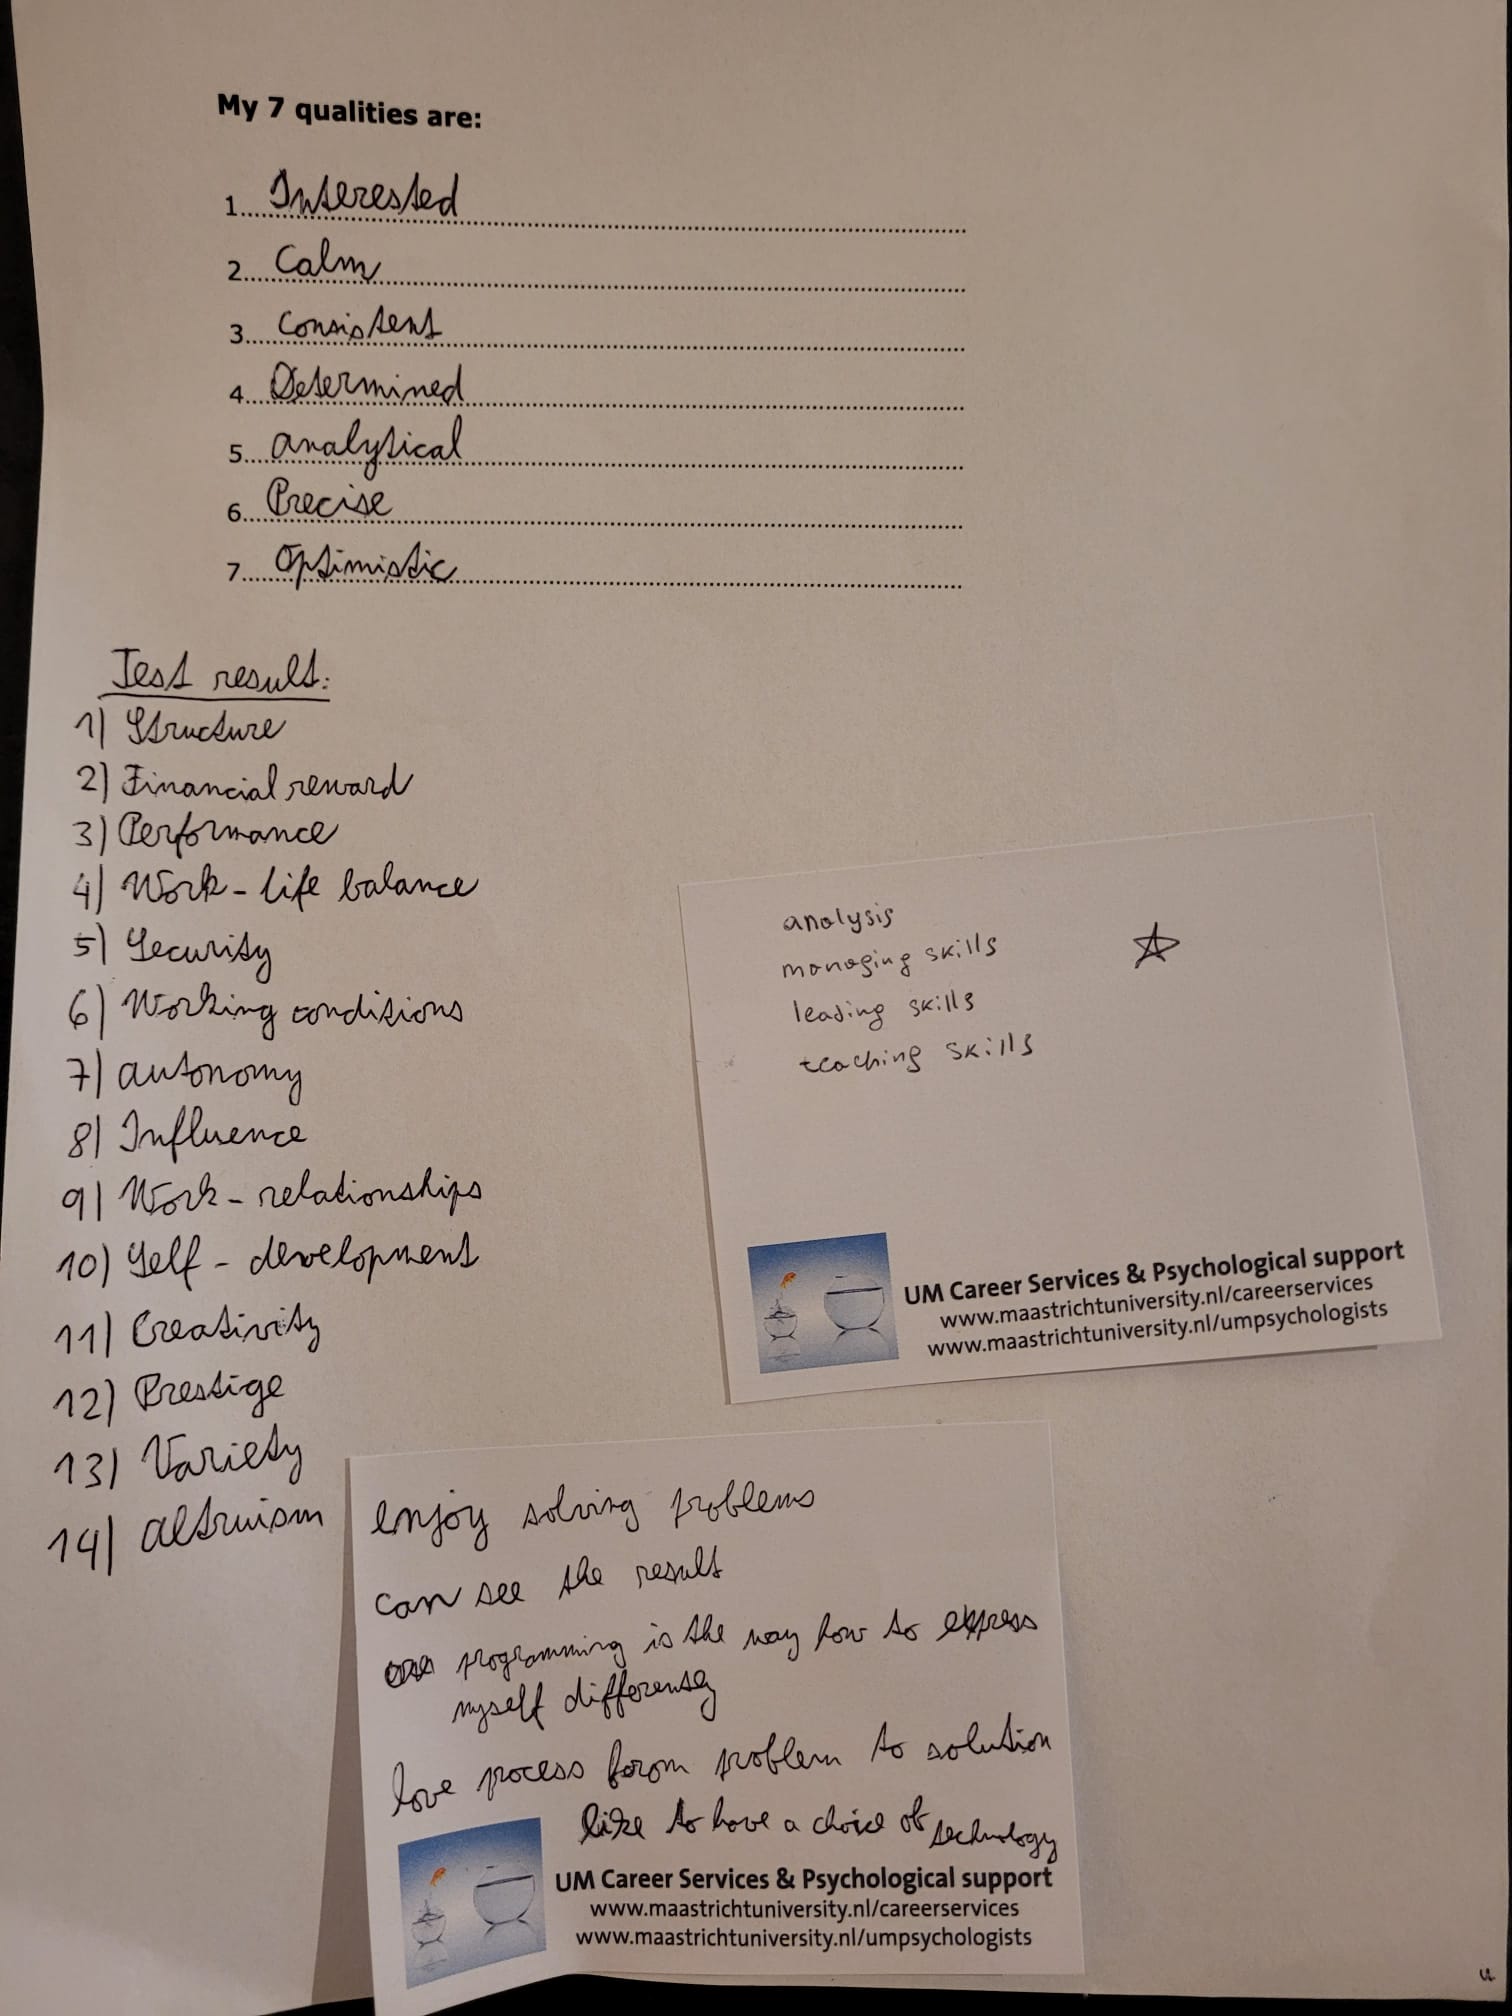 My 7 qualities are:
1 Interested
2 Calm
3 Consistent
4 Determined
5 analytical
6 Precise
7 Optimistic
Test result:
1) Structure
2) Financial reward
3) Performance
4) Work-life balance
5) Security
6) Working conditions
7) autonomy
8) Influence
9) Work-relationships
10) Self-development
11) Creativity
12) Prestige
13) Variety
14) altruism
analysis
managing skills
leading skills
teaching skills
UM Career Services & Psychological support
www.maastrichtuniversity.nl/careerservices
www.maastrichtuniversity.nl/umpsychologists
enjoy solving problems
can see the result
programming is the way how to express
myself differently
love process from problem to solution
like to have a choice of technology
UM Career Services & Psychological support
www.maastrichtuniversity.nl/careerservices
www.maastrichtuniversity.nl/umpsychologists